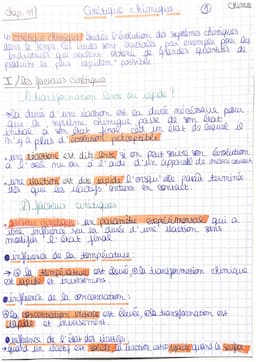 chap. 11
Cinétique chimique
①
chimie
cinétique chimique étudie l'évolution des systèmes chimiques
dans le temps. Ces études sont avancées par exemple pour les
industriels qui veulent obtenir de grandes quantités de
produits le plus rapidem. possible.
I / Les facteurs cinétiques
1) transformation lente ou rapide ?
→ la durée d'une réaction est la durée nécessaire pour
que le système chimique passe de son état
initial à son état final càd un état de lequel il
n'y a plus d'évolution perceptible.
une réaction est dite lente si on peut suivre son évolution
à l'œil nu ou à l'aide d'un appareil de mesure courant
une réaction est dite rapide lorsqu'elle paraît terminée
dès que les réactifs entrent en contact.
2) facteurs cinétiques
facteur cinétique : un paramètre expérimental qui a
une influence sur la durée d'une réaction sans
modifier l'état final.
influence de la température :
→ la température est élevée la transformation chimique
est rapide et inversement.
influence de la concentration :
la concentration initiale est élevée la transformation est
rapide et inversement.
influence de l'état des réactifs :
quand un réactif est solide la réaction est rapide quand la surface